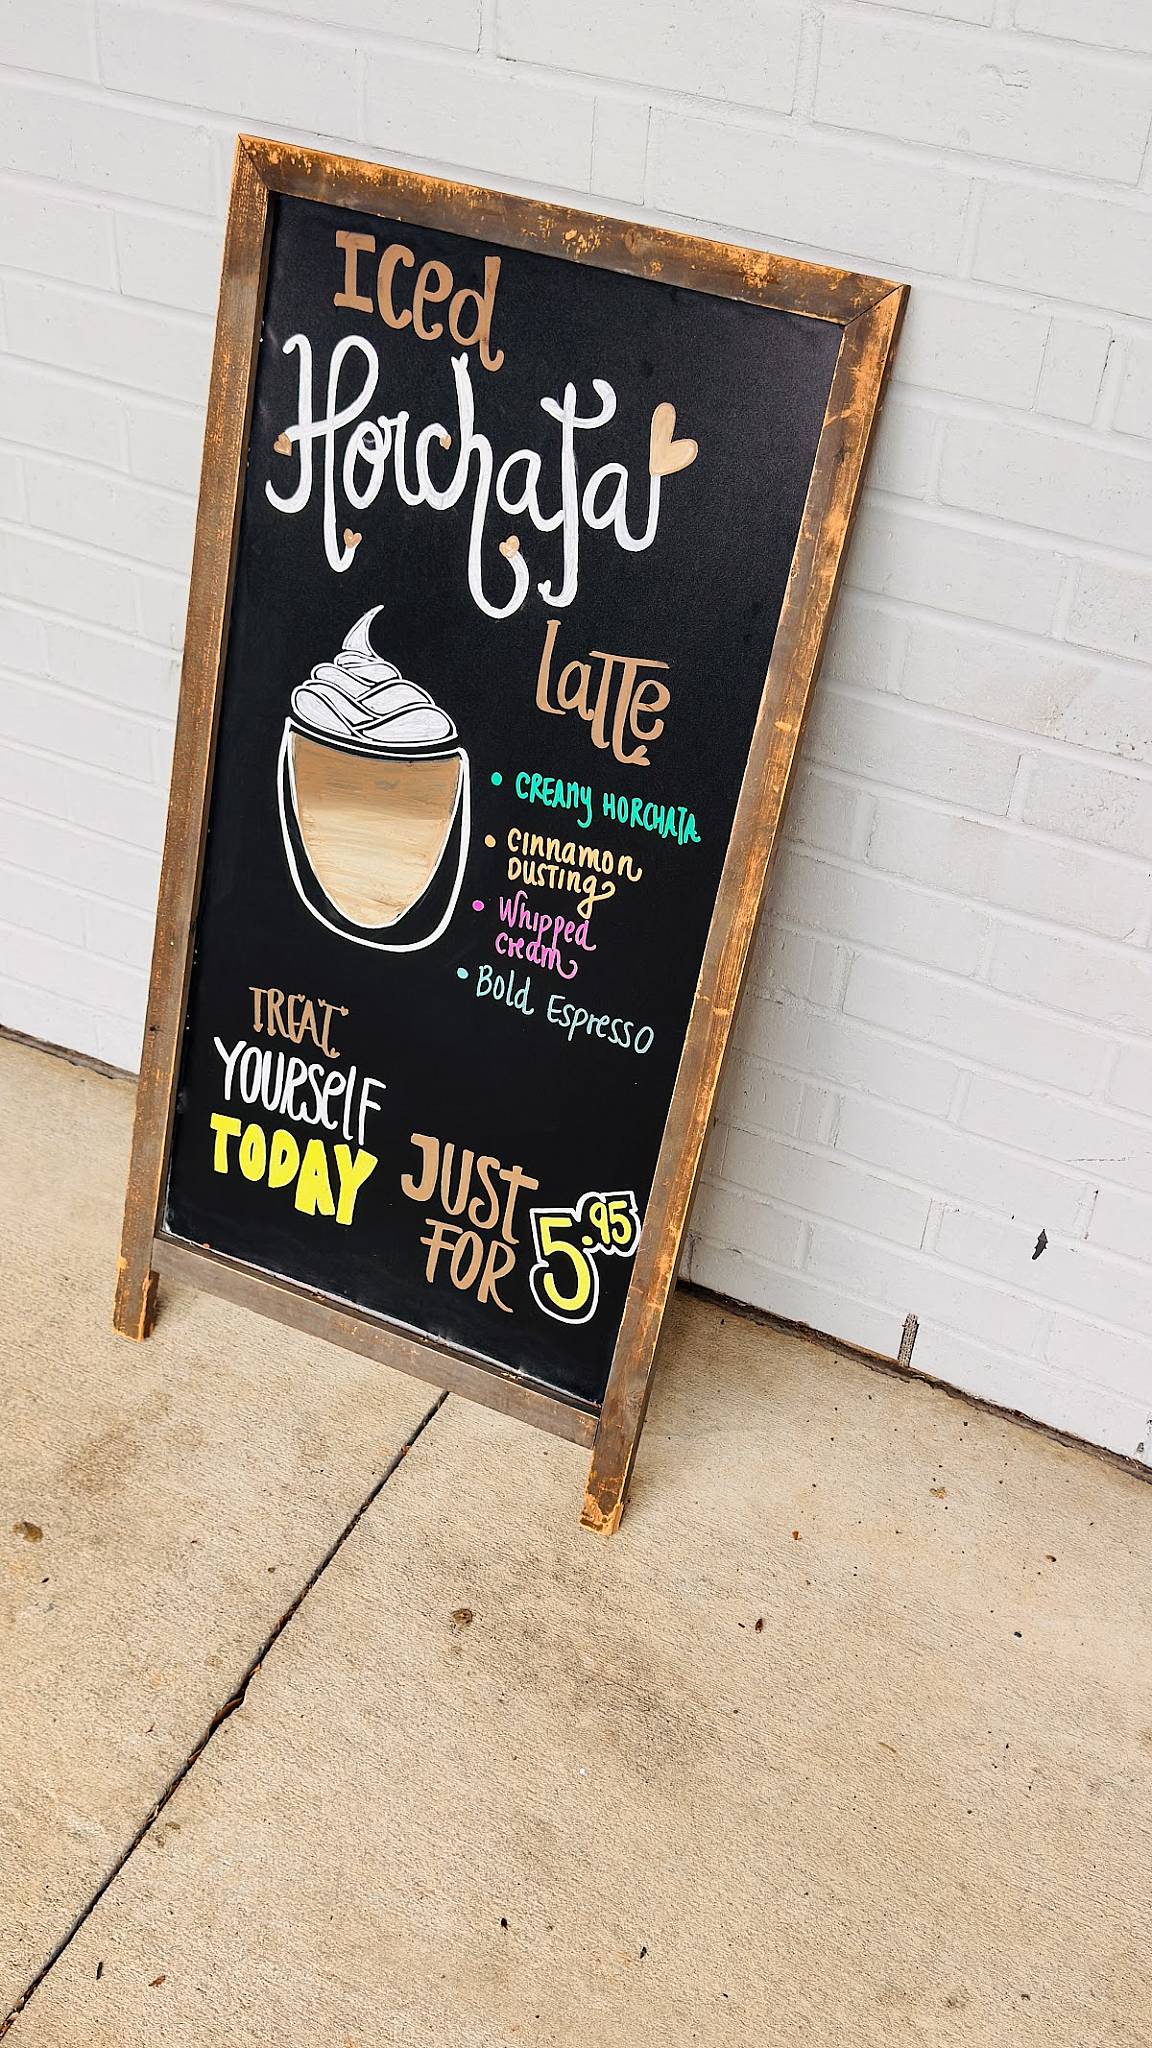 Iced
Horchata
Latte
• CREAMY HORCHATA
• Cinnamon
DUSTING
• Whipped
Cream
• Bold Espresso
TREAT
YOURSELF
TODAY
JUST
FOR 5.95